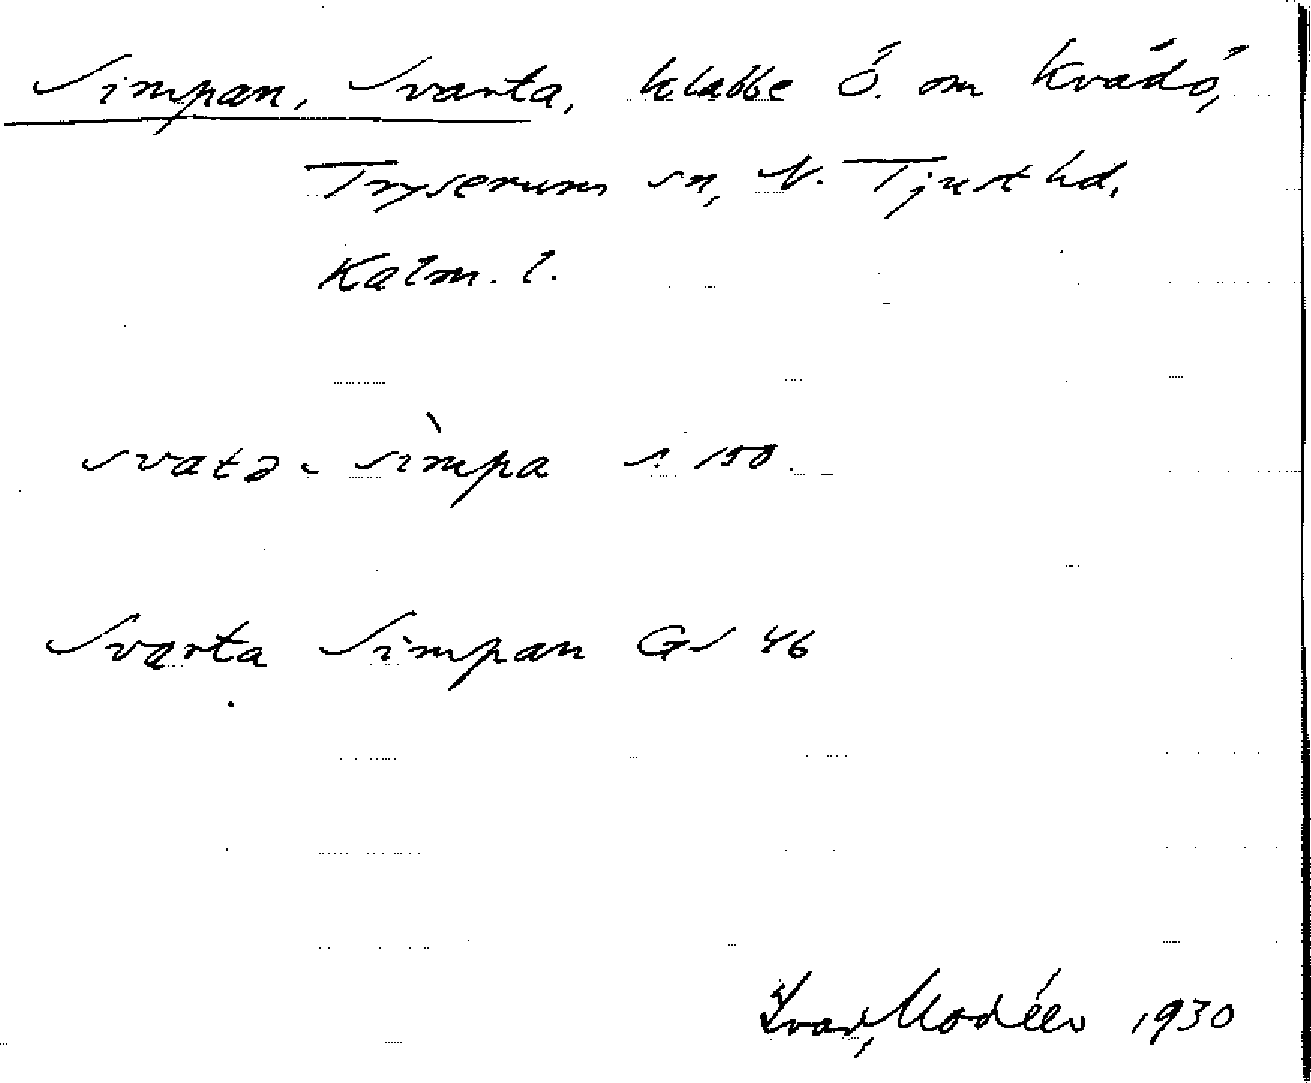 Simpan, Svarta, klabbe Ö. om Kvädö,
Tryserums sn, N. Tjust hd.
Kalm. l.
svatə- sìmpa s. 150.
Svarta Simpan GS 46
Ivar Modéer 1930